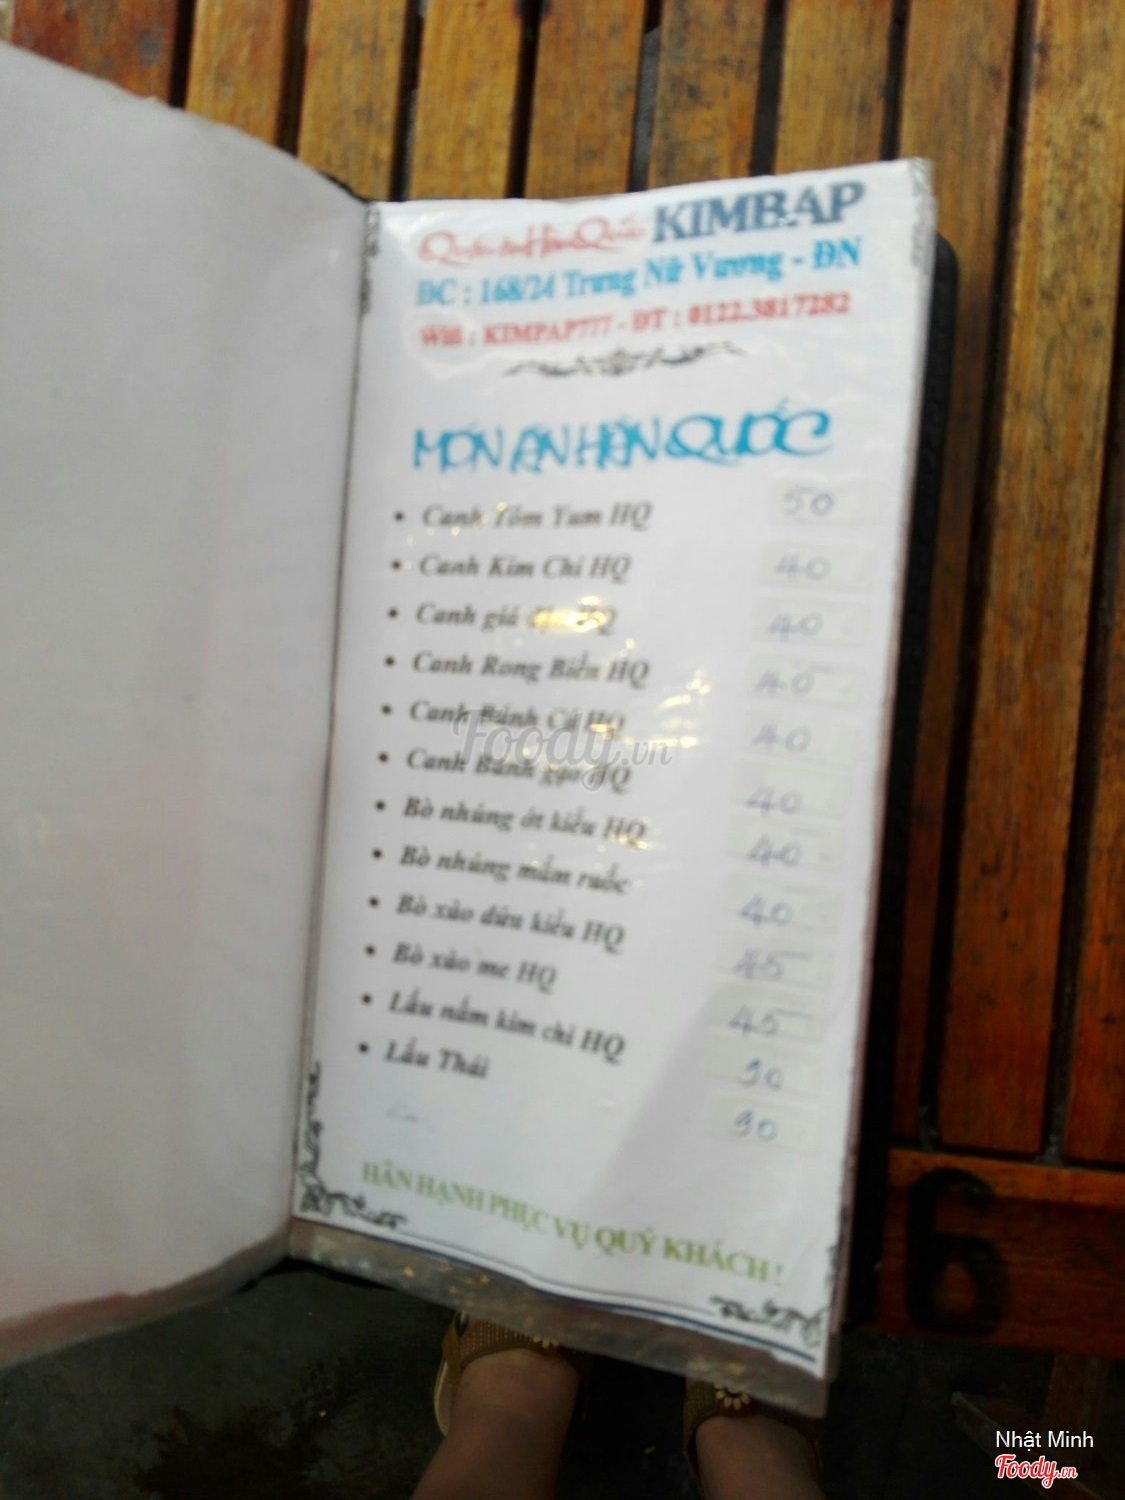 Quán ăn Hàn Quốc KIMBAP
ĐC : 168/24 Trưng Nữ Vương - ĐN
Wifi : KIMPAP777 - ĐT : 0122.3817282
MÓN ĂN HÀN QUỐC
• Canh Tôm Yum HQ 50
• Canh Kim Chi HQ 40
• Canh giá đậu HQ 40
• Canh Rong Biển HQ 40
• Canh Bánh Cá HQ 40
• Canh Bánh gạo HQ 40
• Bò nhúng ớt kiểu HQ 40
• Bò nhúng mắm ruốc 40
• Bò xào dứa kiểu HQ 45
• Bò xào me HQ 45
• Lẩu nấm kim chi HQ 90
• Lẩu Thái 90
HÂN HẠNH PHỤC VỤ QUÝ KHÁCH !
Foody.vn
6
Nhật Minh
Foody.vn